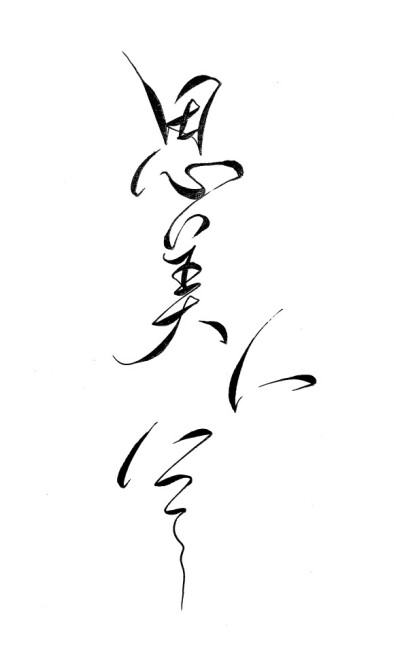 思美人兮